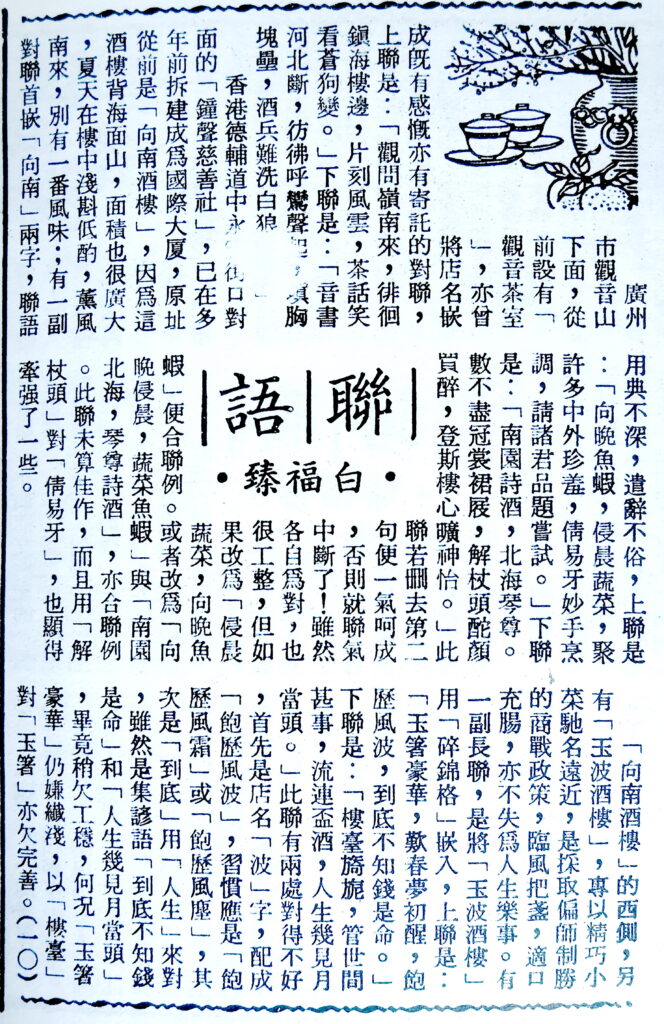 聯語
•白福臻•
廣州
市觀音山
下面，從
前設有「
觀音茶室
」，亦曾
將店名嵌
成既有感慨亦有寄託的對聯，
上聯是：「觀問嶺南來，徘徊
鎮海樓邊，片刻風雲，茶話笑
看蒼狗變。」下聯是：「音書
河北斷，彷彿呼鸞聲起，填胸
塊壘，酒兵難洗白狼
香港德輔道中永街口對
面的「鐘聲慈善社」，已在多
年前拆建成爲國際大厦，原址
從前是「向南酒樓」，因爲這
酒樓背海面山，面積也很廣大
，夏天在樓中淺斟低酌，薰風
南來，別有一番風味；有一副
對聯首嵌「向南」兩字，聯語
用典不深，遣辭不俗，上聯是
：「向晚魚蝦，侵晨蔬菜，聚
許多中外珍羞，倩易牙妙手烹
調，請諸君品題嘗試。」下聯
是：「南園詩酒，北海琴尊。
數不盡冠裳裙屐，解杖頭酡顏
買醉，登斯樓心曠神怡。」此
聯若刪去第二
句便一氣呵成
，否則就聯氣
中斷了！雖然
各自爲對，也
很工整，但如
果改爲「侵晨
蔬菜，向晚魚
蝦」便合聯例。或者改爲「向
晚侵晨，蔬菜魚蝦」與「南園
北海，琴尊詩酒」，亦合聯例
。此聯未算佳作，而且用「解
杖頭」對「倩易牙」，也顯得
牽强了一些。
「向南酒樓」的西側，另
有「玉波酒樓」，專以精巧小
菜馳名遠近，是採取偏師制勝
的商戰政策，臨風把盞，適口
充腸，亦不失爲人生樂事。有
一副長聯，是將「玉波酒樓」
用「碎錦格」嵌入，上聯是：
「玉箸豪華，歎春夢初醒，飽
歷風波，到底不知錢是命。」
下聯是：「樓臺旖旎，管世間
甚事，流連盃酒，人生幾見月
當頭。」此聯有兩處對得不好
，首先是店名「波」字，配成
「飽歷風波」，習慣應是「飽
歷風霜」或「飽歷風塵」，其
次是「到底」用「人生」來對
，雖然是集諺語「到底不知錢
是命」和「人生幾見月當頭」
，畢竟稍欠工穩，何況「玉箸
豪華」仍嫌纖淺，以「樓臺」
對「玉箸」亦欠完善。（一〇）